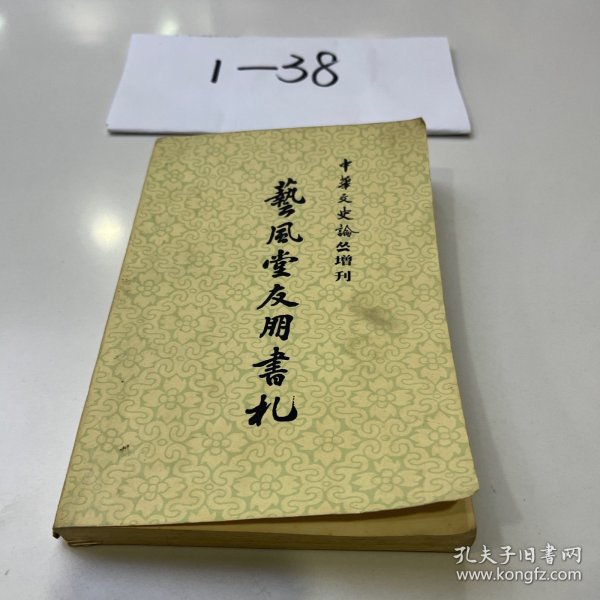 1-38
中華文史論丛增刊
藝風堂友朋書札
孔夫子旧书网
www.kongfz.com